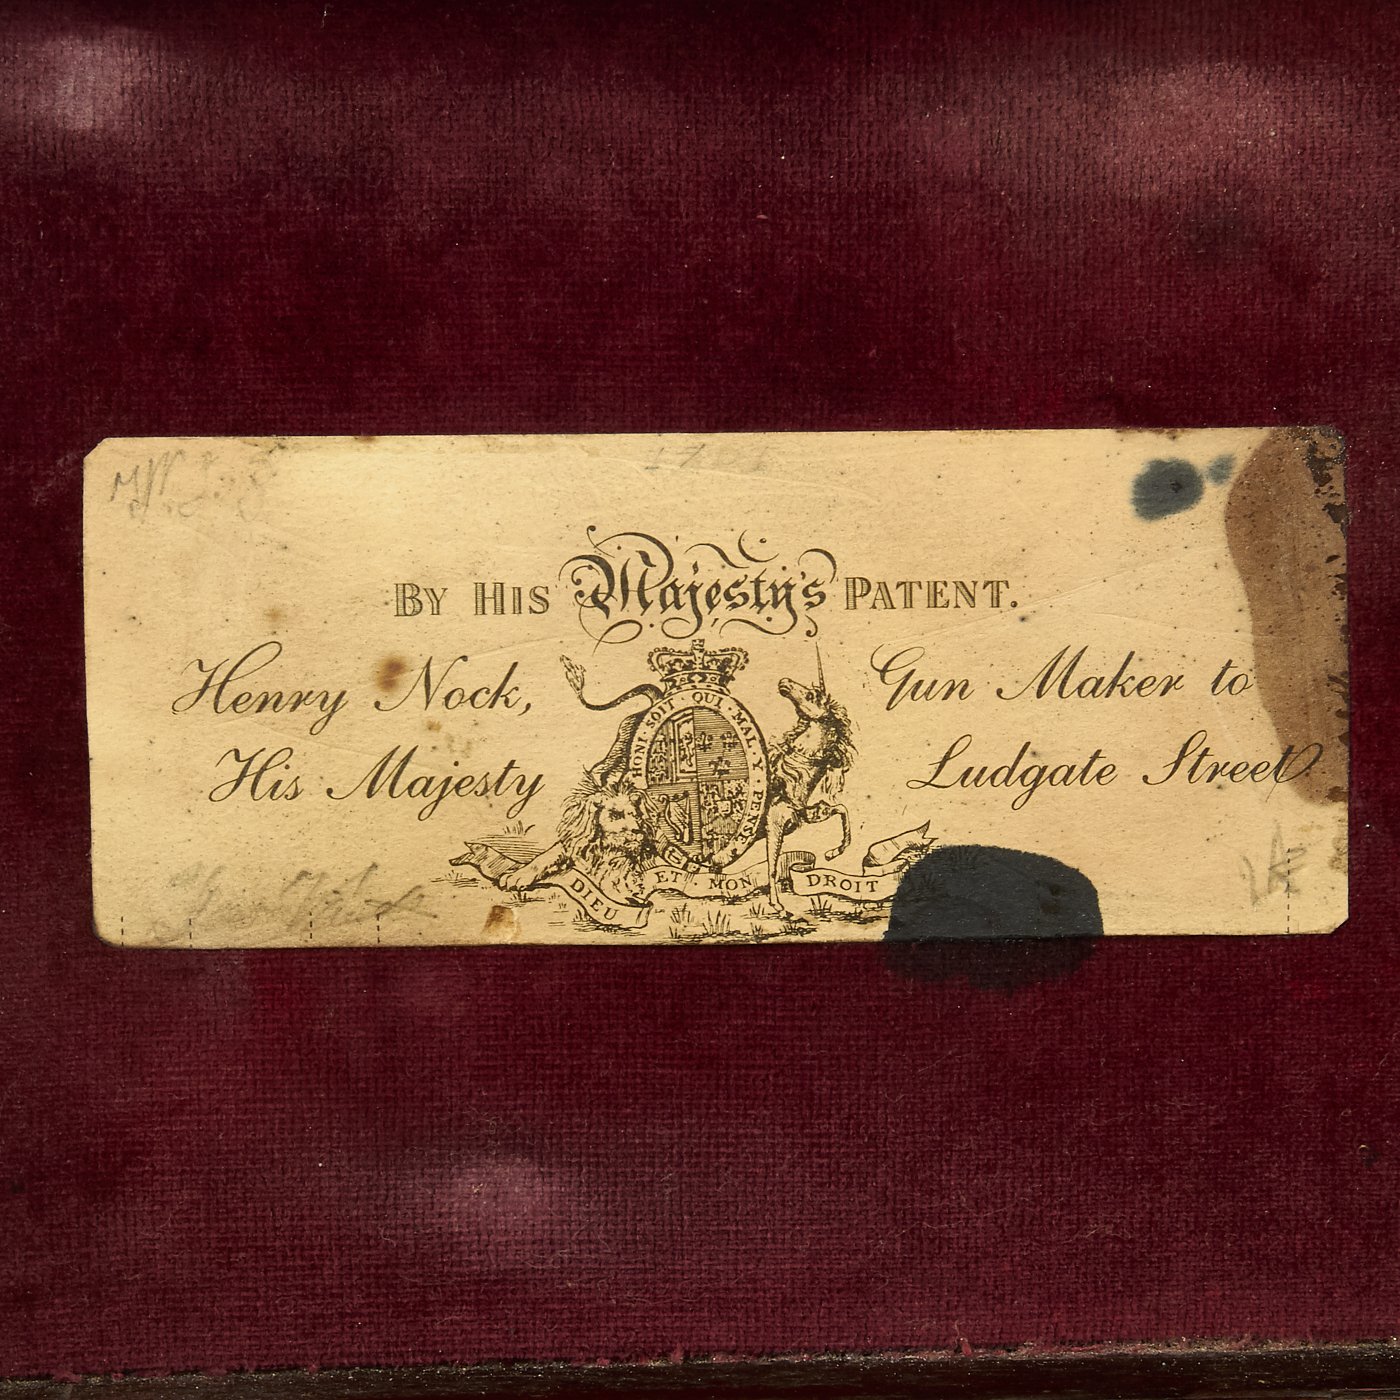 BY HIS Majesty's PATENT.
Henry Nock, Gun Maker to
His Majesty Ludgate Street
HONI · SOIT · QUI · MAL · Y · PENSE
DIEU ET · MON DROIT